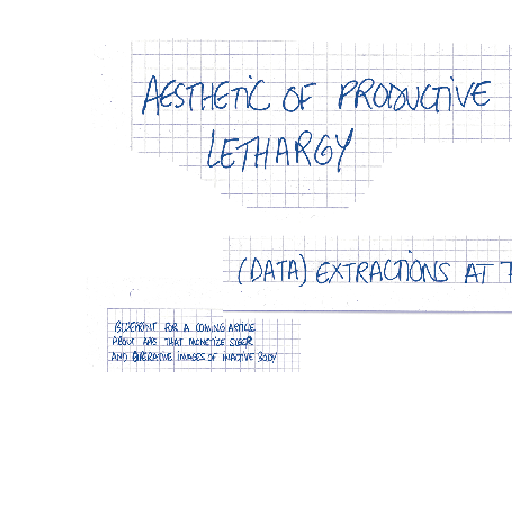 AESTHETIC OF PRODUCTIVE
LETHARGY
(DATA) EXTRACTIONS AT
BLUEPRINT FOR A COMING ARTICLE
ABOUT APPS THAT MONETIZE SLEEP
AND OPERATIVE IMAGES OF INACTIVE BODY